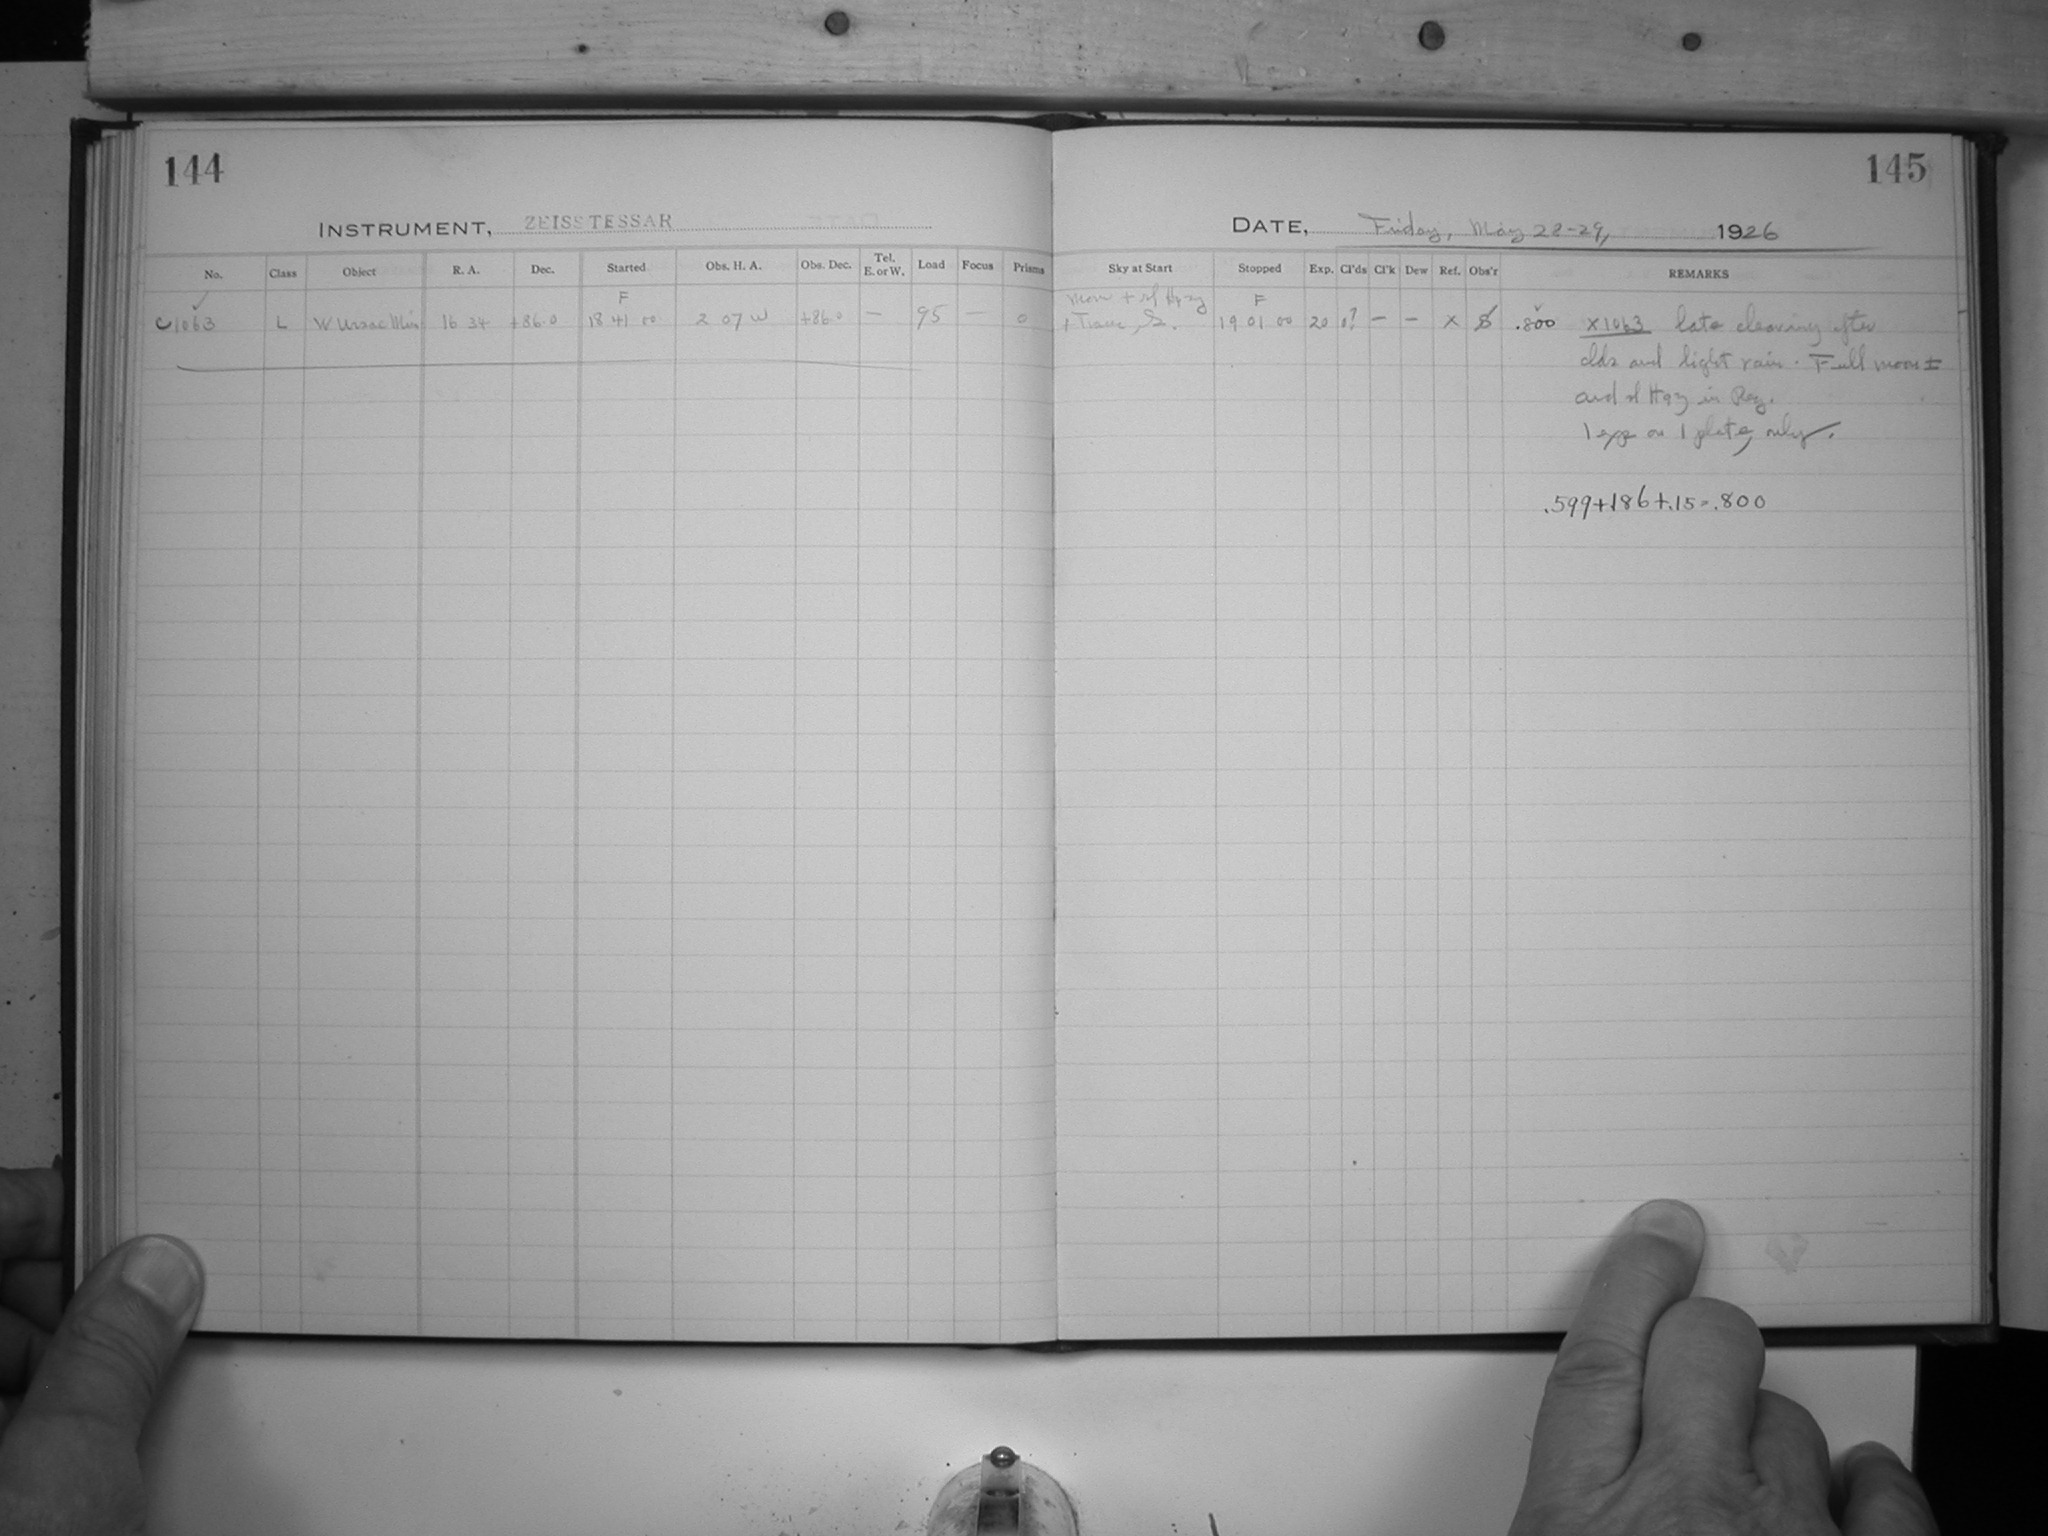 144
INSTRUMENT, ZEISS TESSAR
No. Class Object R. A. Dec. Started Obs. H. A. Obs. Dec. Tel. E. or W. Load Focus Prisms
F
C1063 L W Ursae Min 16 34 +86.0 18 41 00 2 07 W +86.0 — 95 — 0
145
DATE, Friday, May 28-29, 1926
Sky at Start Stopped Exp. Cl'ds Cl'k Dew Ref. Obs'r REMARKS
Moon + sl Hazy F
+ Trace 19 01 00 20 0? — — x .800 x1063 late clearing after
clds and light rain. Full moon ±
and sl Hazy in Reg.
1 exp on 1 plate, only.
.599+.186+.15=.800